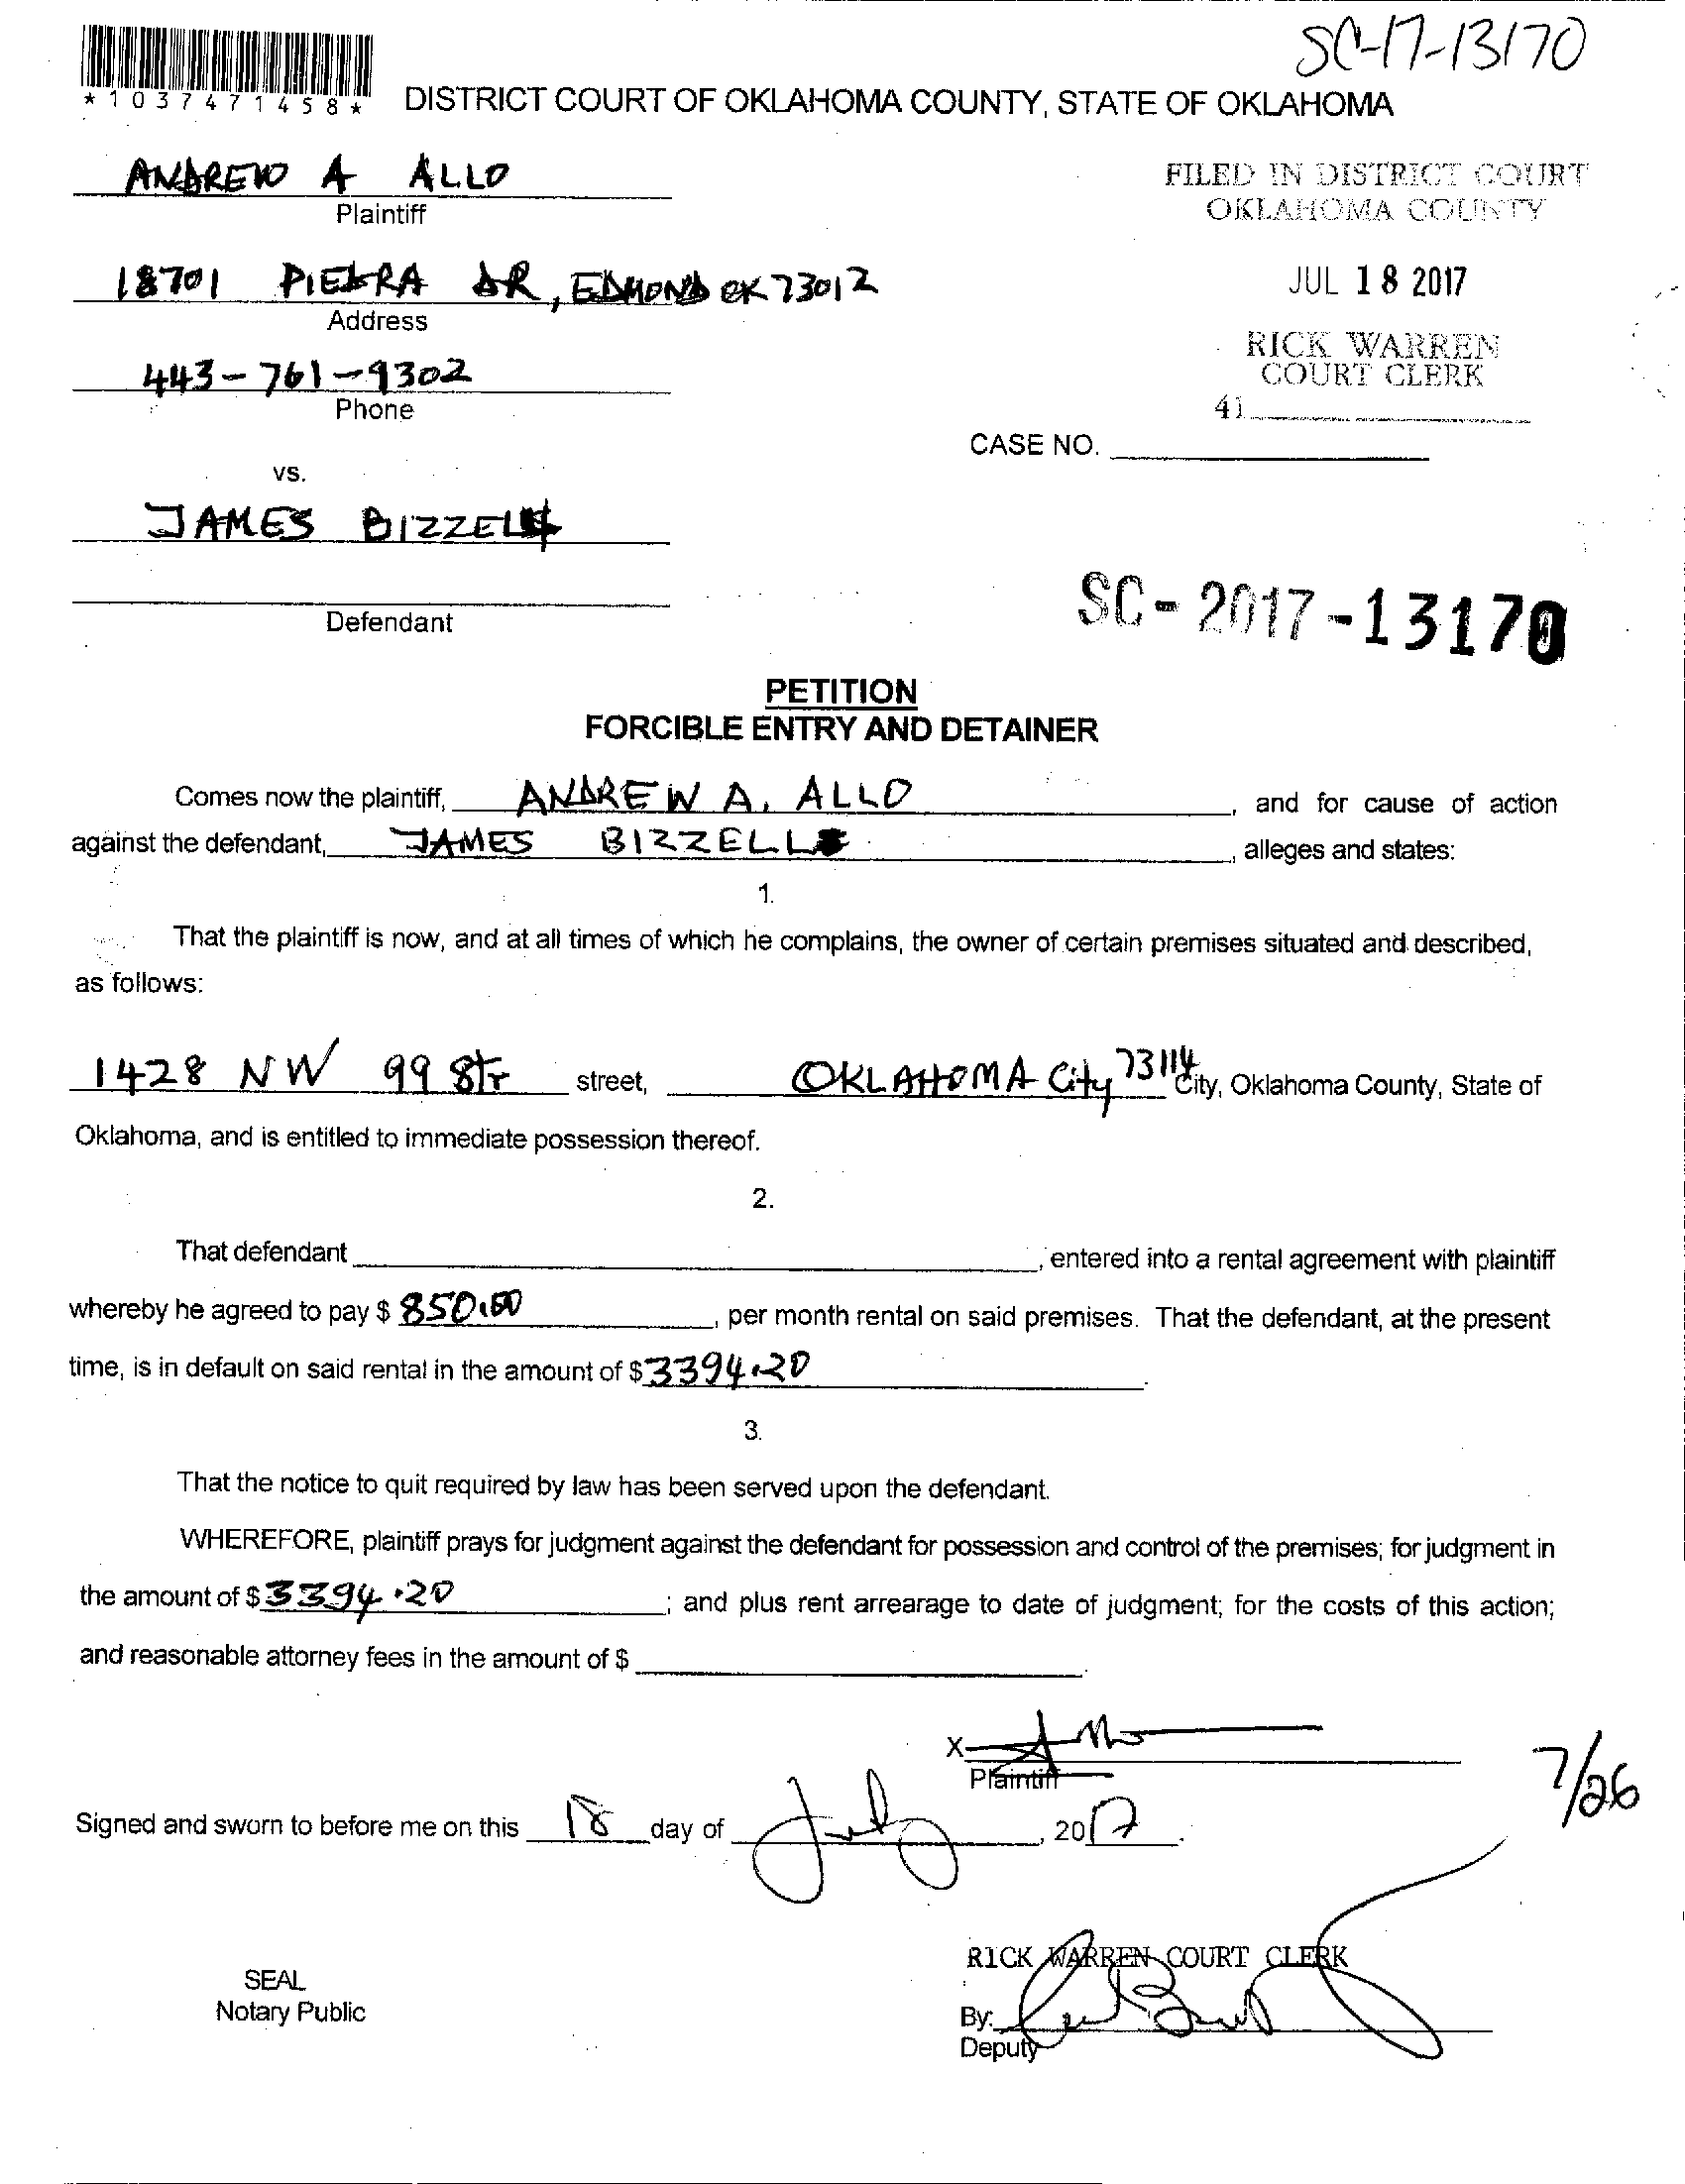 SC-17-13170
*1037471458*
DISTRICT COURT OF OKLAHOMA COUNTY, STATE OF OKLAHOMA
ANDREW A ALLO
Plaintiff
FILED IN DISTRICT COURT
OKLAHOMA COUNTY
18701 PIEDRA DR, EDMOND OK 73012
Address
JUL 18 2017
443-761-9302
Phone
RICK WARREN
COURT CLERK
41
CASE NO.
vs.
JAMES BIZZELL
Defendant
SC-2017-13170
PETITION
FORCIBLE ENTRY AND DETAINER
Comes now the plaintiff, ANDREW A. ALLO, and for cause of action
against the defendant, JAMES BIZZELL, alleges and states:
1.
That the plaintiff is now, and at all times of which he complains, the owner of certain premises situated and described,
as follows:
1428 NW 99 Str street, OKLAHOMA City 73114 City, Oklahoma County, State of
Oklahoma, and is entitled to immediate possession thereof.
2.
That defendant, entered into a rental agreement with plaintiff
whereby he agreed to pay $ 850.00, per month rental on said premises. That the defendant, at the present
time, is in default on said rental in the amount of $3394.20.
3.
That the notice to quit required by law has been served upon the defendant.
WHEREFORE, plaintiff prays for judgment against the defendant for possession and control of the premises; for judgment in
the amount of $3394.20; and plus rent arrearage to date of judgment; for the costs of this action;
and reasonable attorney fees in the amount of $.
X
Plaintiff
7/26
Signed and sworn to before me on this 18 day of July, 2017.
RICK WARREN COURT CLERK
SEAL
Notary Public
By:
Deputy